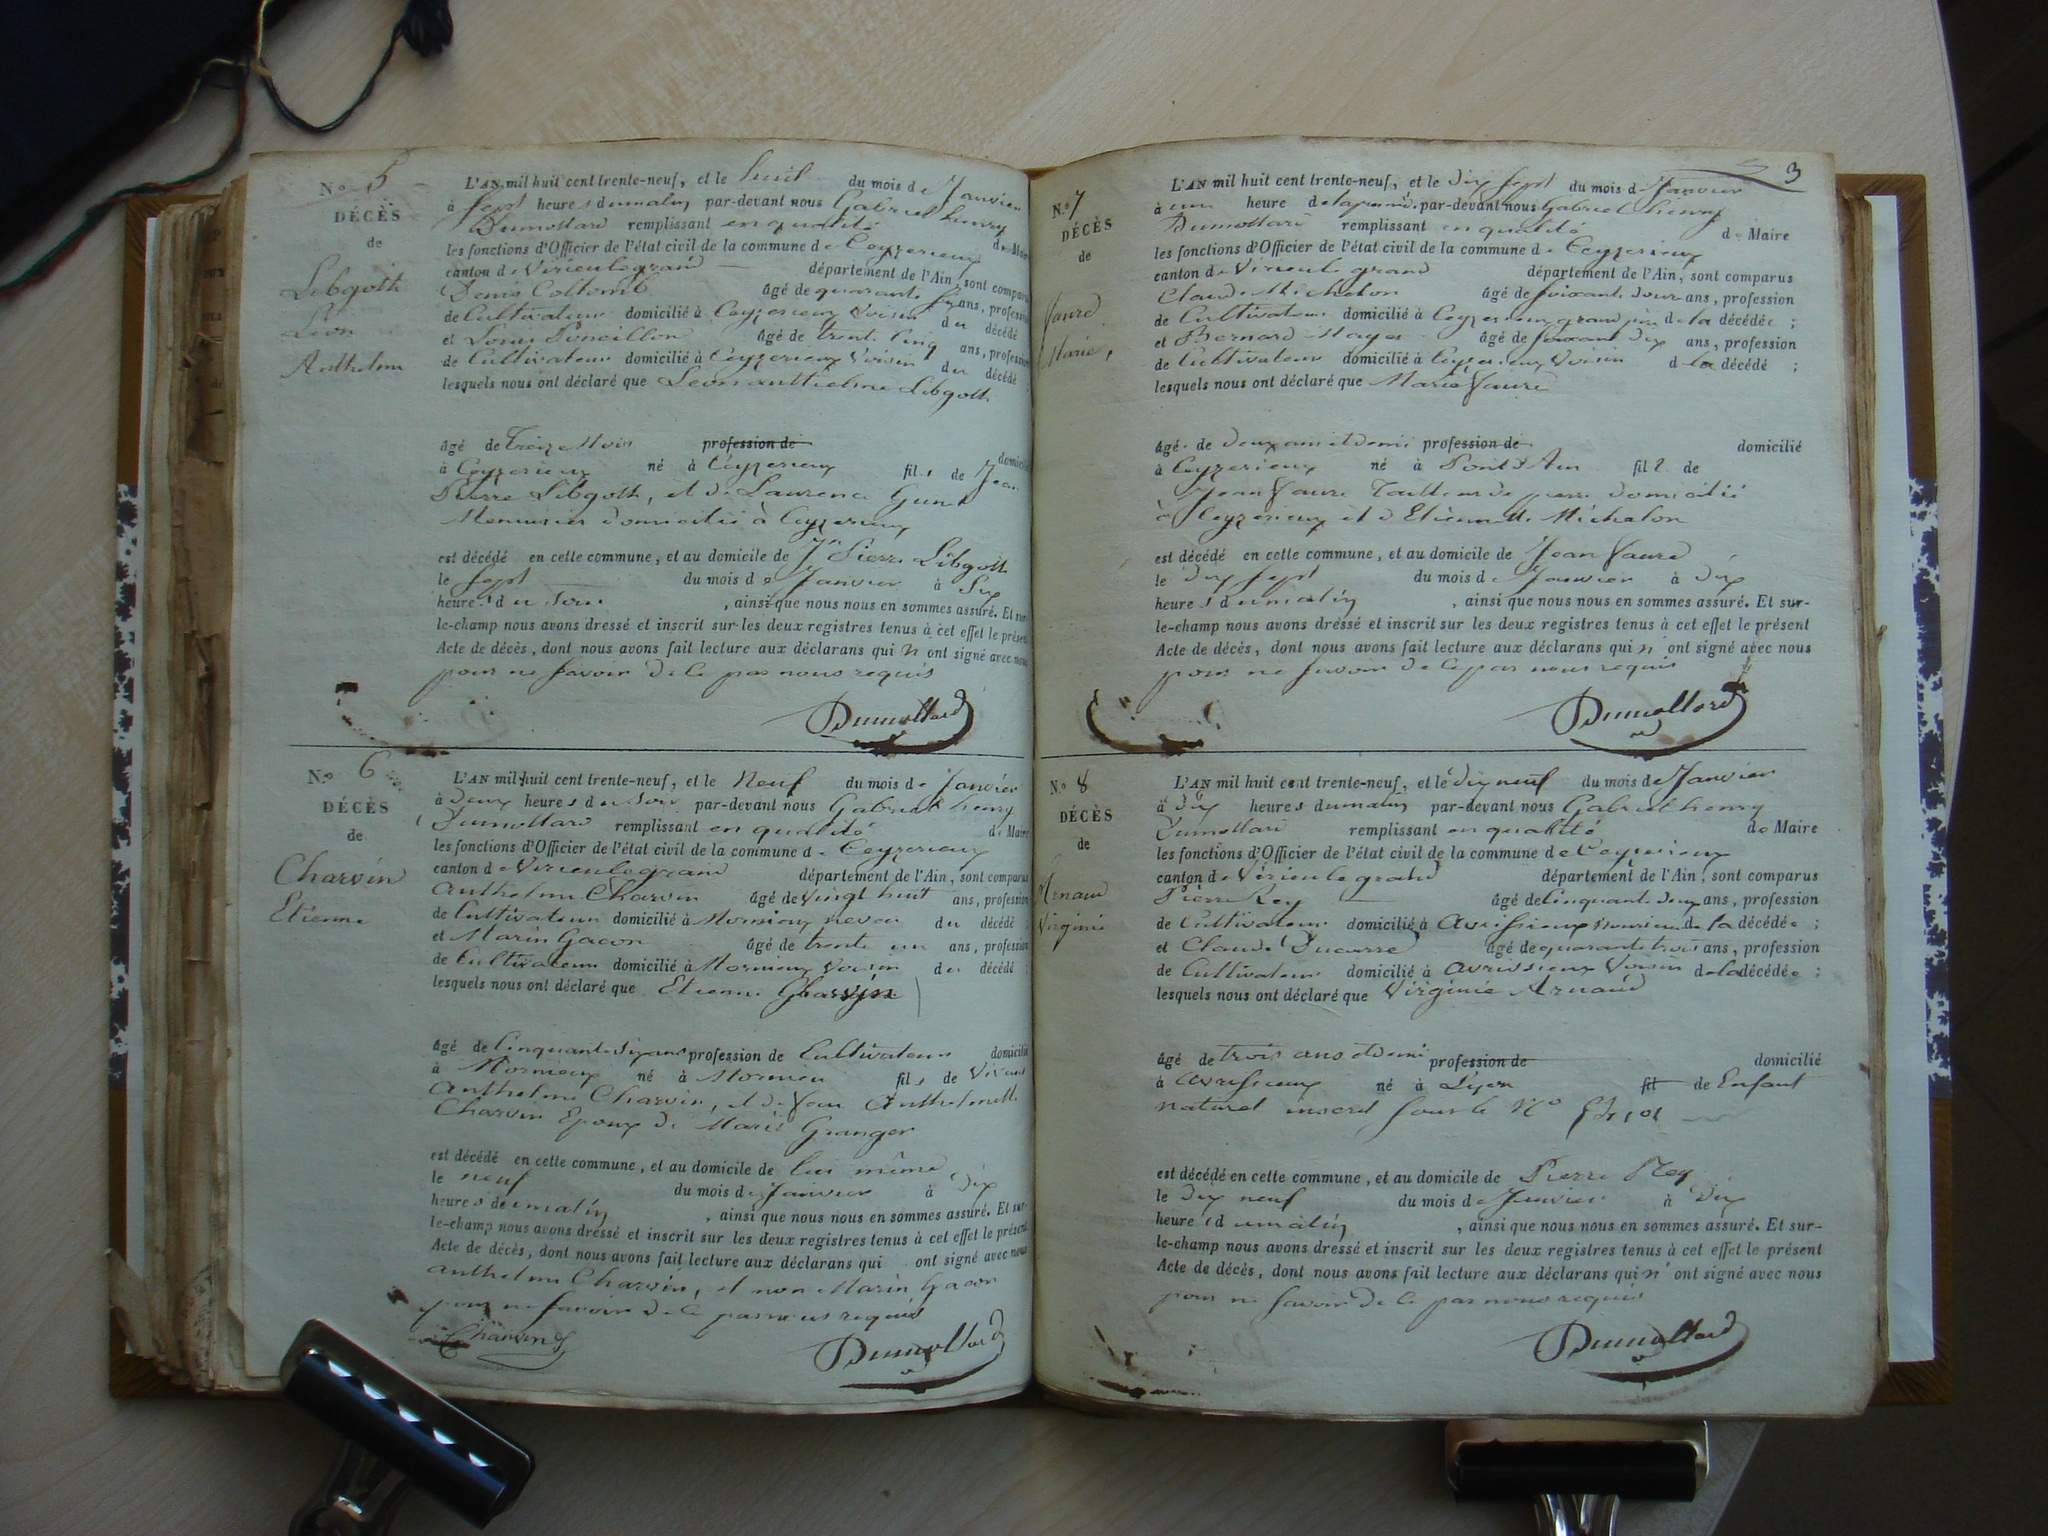 No 5
DÉCÈS
de
Libgoth
Léon
Anthelme
L'AN mil huit cent trente-neuf, et le huit du mois de Janvier
à sept heures du matin par-devant nous Gabriel henry
Dumollard remplissant en qualité de Maire
les fonctions d'Officier de l'état civil de la commune de Ceyzerieux
canton de Virieu le grand département de l'Ain, sont comparus
Denis Collomb âgé de quarante ans, profession
de Cultivateur domicilié à Ceyzerieux Voisin du décédé
et Louis Poncillon âgé de trente Cinq ans, profession
de Cultivateur domicilié à Ceyzerieux Voisin du décédé
lesquels nous ont déclaré que Léon anthelme Libgoth
âgé de Treize Mois profession de domicilié
à Ceyzerieux né à Ceyzerieux fils de Jean
Pierre Libgoth, et de Laurence
Menuisier domicilié à Ceyzerieux
est décédé en cette commune, et au domicile de Jn Pierre Libgoth
le sept du mois de Janvier à Six
heures du soir, ainsi que nous nous en sommes assuré. Et sur-
le-champ nous avons dressé et inscrit sur les deux registres tenus à cet effet le présent
Acte de décès, dont nous avons fait lecture aux déclarans qui n'ont signé avec nous
pour ne savoir de ce par nous requis
Dumollard
No 6
DÉCÈS
de
Charvin
Etienne
L'AN mil huit cent trente-neuf, et le Neuf du mois de Janvier
à Deux heures du soir par-devant nous Gabriel henry
Dumollard remplissant en qualité de Maire
les fonctions d'Officier de l'état civil de la commune de Ceyzerieux
canton de Virieu le grand département de l'Ain, sont comparus
Anthelme Charvin âgé de Vingt huit ans, profession
de Cultivateur domicilié à Mornieux neveu du décédé ;
et Marin Gacon âgé de trente un ans, profession
de Cultivateur domicilié à Mornieux Voisin du décédé ;
lesquels nous ont déclaré que Etienne Charvin
âgé de Cinquante Six ans profession de Cultivateur domicilié
à Mornieux né à Mornieu fils de Vivant
Anthelme Charvin, et de feue Anthelmette
Charvin Epoux de Marie Granger
est décédé en cette commune, et au domicile de lui même
le neuf du mois de Janvier à Dix
heures du matin, ainsi que nous nous en sommes assuré. Et sur-
le-champ nous avons dressé et inscrit sur les deux registres tenus à cet effet le présent
Acte de décès, dont nous avons fait lecture aux déclarans qui ont signé avec nous
anthelme Charvin, et non Marin Gacon
pour ne savoir de ce par nous requis
Charvin
Dumollard
3
No 7
DÉCÈS
de
Faure
Marie,
L'AN mil huit cent trente-neuf, et le Dix sept du mois de Janvier
à une heure de laprémidi par-devant nous Gabriel henry
Dumollard remplissant en qualité de Maire
les fonctions d'Officier de l'état civil de la commune de Ceyzerieux
canton de Virieu le grand département de l'Ain, sont comparus
Claude Michalon âgé de soixante douze ans, profession
de Cultivateur domicilié à Ceyzerieux grand père de la décédée ;
et Bernard Mayer âgé de soixante Dix ans, profession
de Cultivateur domicilié à Ceyzerieux Voisin de la décédé ;
lesquels nous ont déclaré que Marie Faure
âgé de deux ans et demi profession de domicilié
à Ceyzerieux né à Pont d'Ain fille de
Jean Faure Tailleur de pierre domicilié
à Ceyzerieux et d'Etiennette Michalon
est décédé en cette commune, et au domicile de Jean Faure
le dix sept du mois de Janvier à dix
heures du matin, ainsi que nous nous en sommes assuré. Et sur-
le-champ nous avons dressé et inscrit sur les deux registres tenus à cet effet le présent
Acte de décès, dont nous avons fait lecture aux déclarans qui n'ont signé avec nous
pour ne savoir de ce par nous requis
Dumollard
No 8
DÉCÈS
de
Arnaud
Virginie
L'AN mil huit cent trente-neuf, et le dix neuf du mois de Janvier
à Dix heures du matin par-devant nous Gabriel henry
Dumollard remplissant en qualité de Maire
les fonctions d'Officier de l'état civil de la commune de Ceyzerieux
canton de Virieu le grand département de l'Ain, sont comparus
Pierre Rey âgé de Cinquante deux ans, profession
de Cultivateur domicilié à Avrissieux de la décédée ;
et Claude Ducarre âgé de quarante trois ans, profession
de Cultivateur domicilié à avrissieux Voisin de la décédée ;
lesquels nous ont déclaré que Virginie Arnaud
âgé de trois ans et demi profession de domicilié
à avrissieux né à Lyon fil de Enfant
naturel inscrit sous le No
est décédé en cette commune, et au domicile de Pierre Rey
le Dix neuf du mois de Janvier à Dix
heures du matin, ainsi que nous nous en sommes assuré. Et sur-
le-champ nous avons dressé et inscrit sur les deux registres tenus à cet effet le présent
Acte de décès, dont nous avons fait lecture aux déclarans qui n'ont signé avec nous
pour ne savoir de ce par nous requis
Dumollard